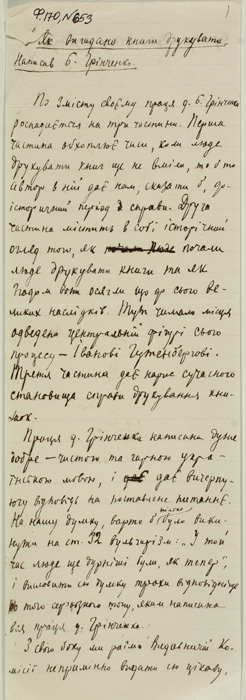 Ф.170, №653
1
Як вигадано книги друкувати.
Написав Б. Грінченко.
По змісту своєму праця д. Б. Грінченка
розпадається на три частини. Перша
частина обхоплює часи, коли люде
друкувати книг ще не вміли, тоб то
автор в ній дає нам, сказати б, до-
історичний період справи. Друга
частина містить в собі історичний
огляд того, як почали
люде друкувати книги та як
згодом вони осягли що до сього ве-
ликих наслідків. Тут чимало місця
одведено центральній фігурі сього
процесу – Іванові Гутенбергові.
Третя частина дає нарис сучасного
становища справи друкування кни-
жок.
Праця д. Грінченка написана дуже
добре – чистою та гарною укра-
їнською мовою, і дає вичерпу-
ючу відповідь на поставлене питаннє.
На нашу думку, варто б було тілько вики-
нути на ст. 32 вульгарізм: „І той
час люде ще дурніші були, як тепер",
і висловити сю думку трохи відповідніше
до того серйозного тону, яким написана
вся праця д. Грінченка.
З свого боку ми раїмо Видавничій Ко-
місії неприминно видати сю цікаву,